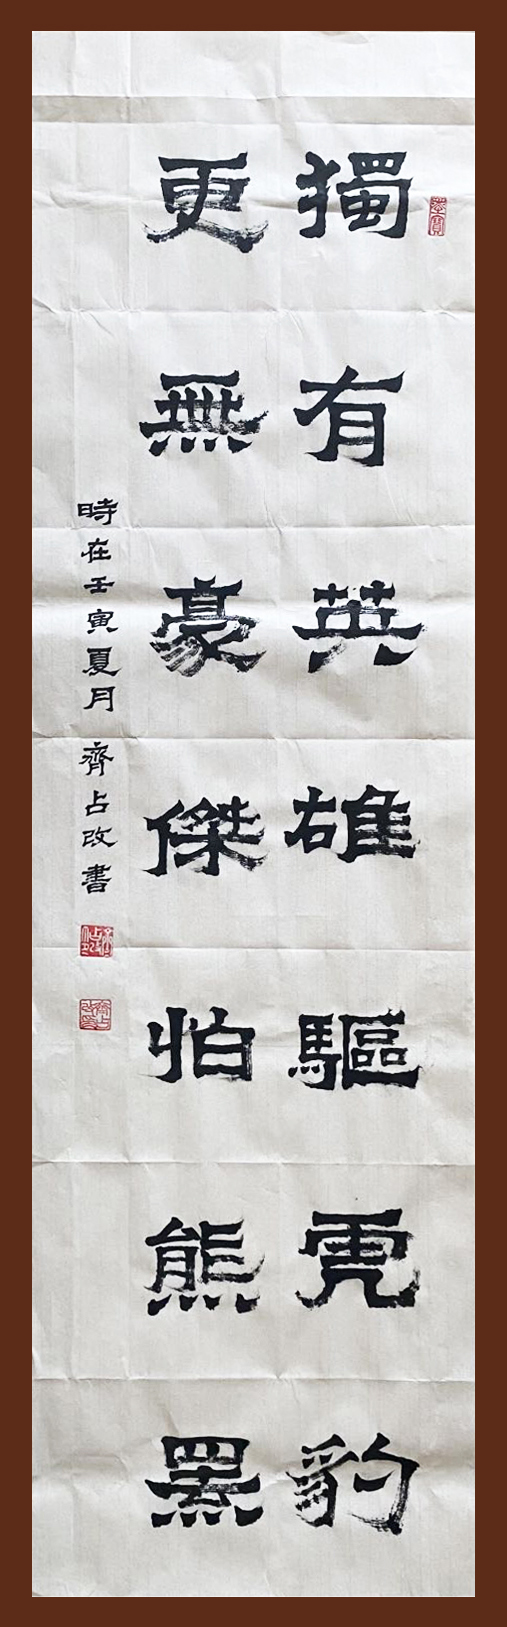 獨有英雄驅虎豹
更無豪傑怕熊羆
時在壬寅夏月 齊占改書